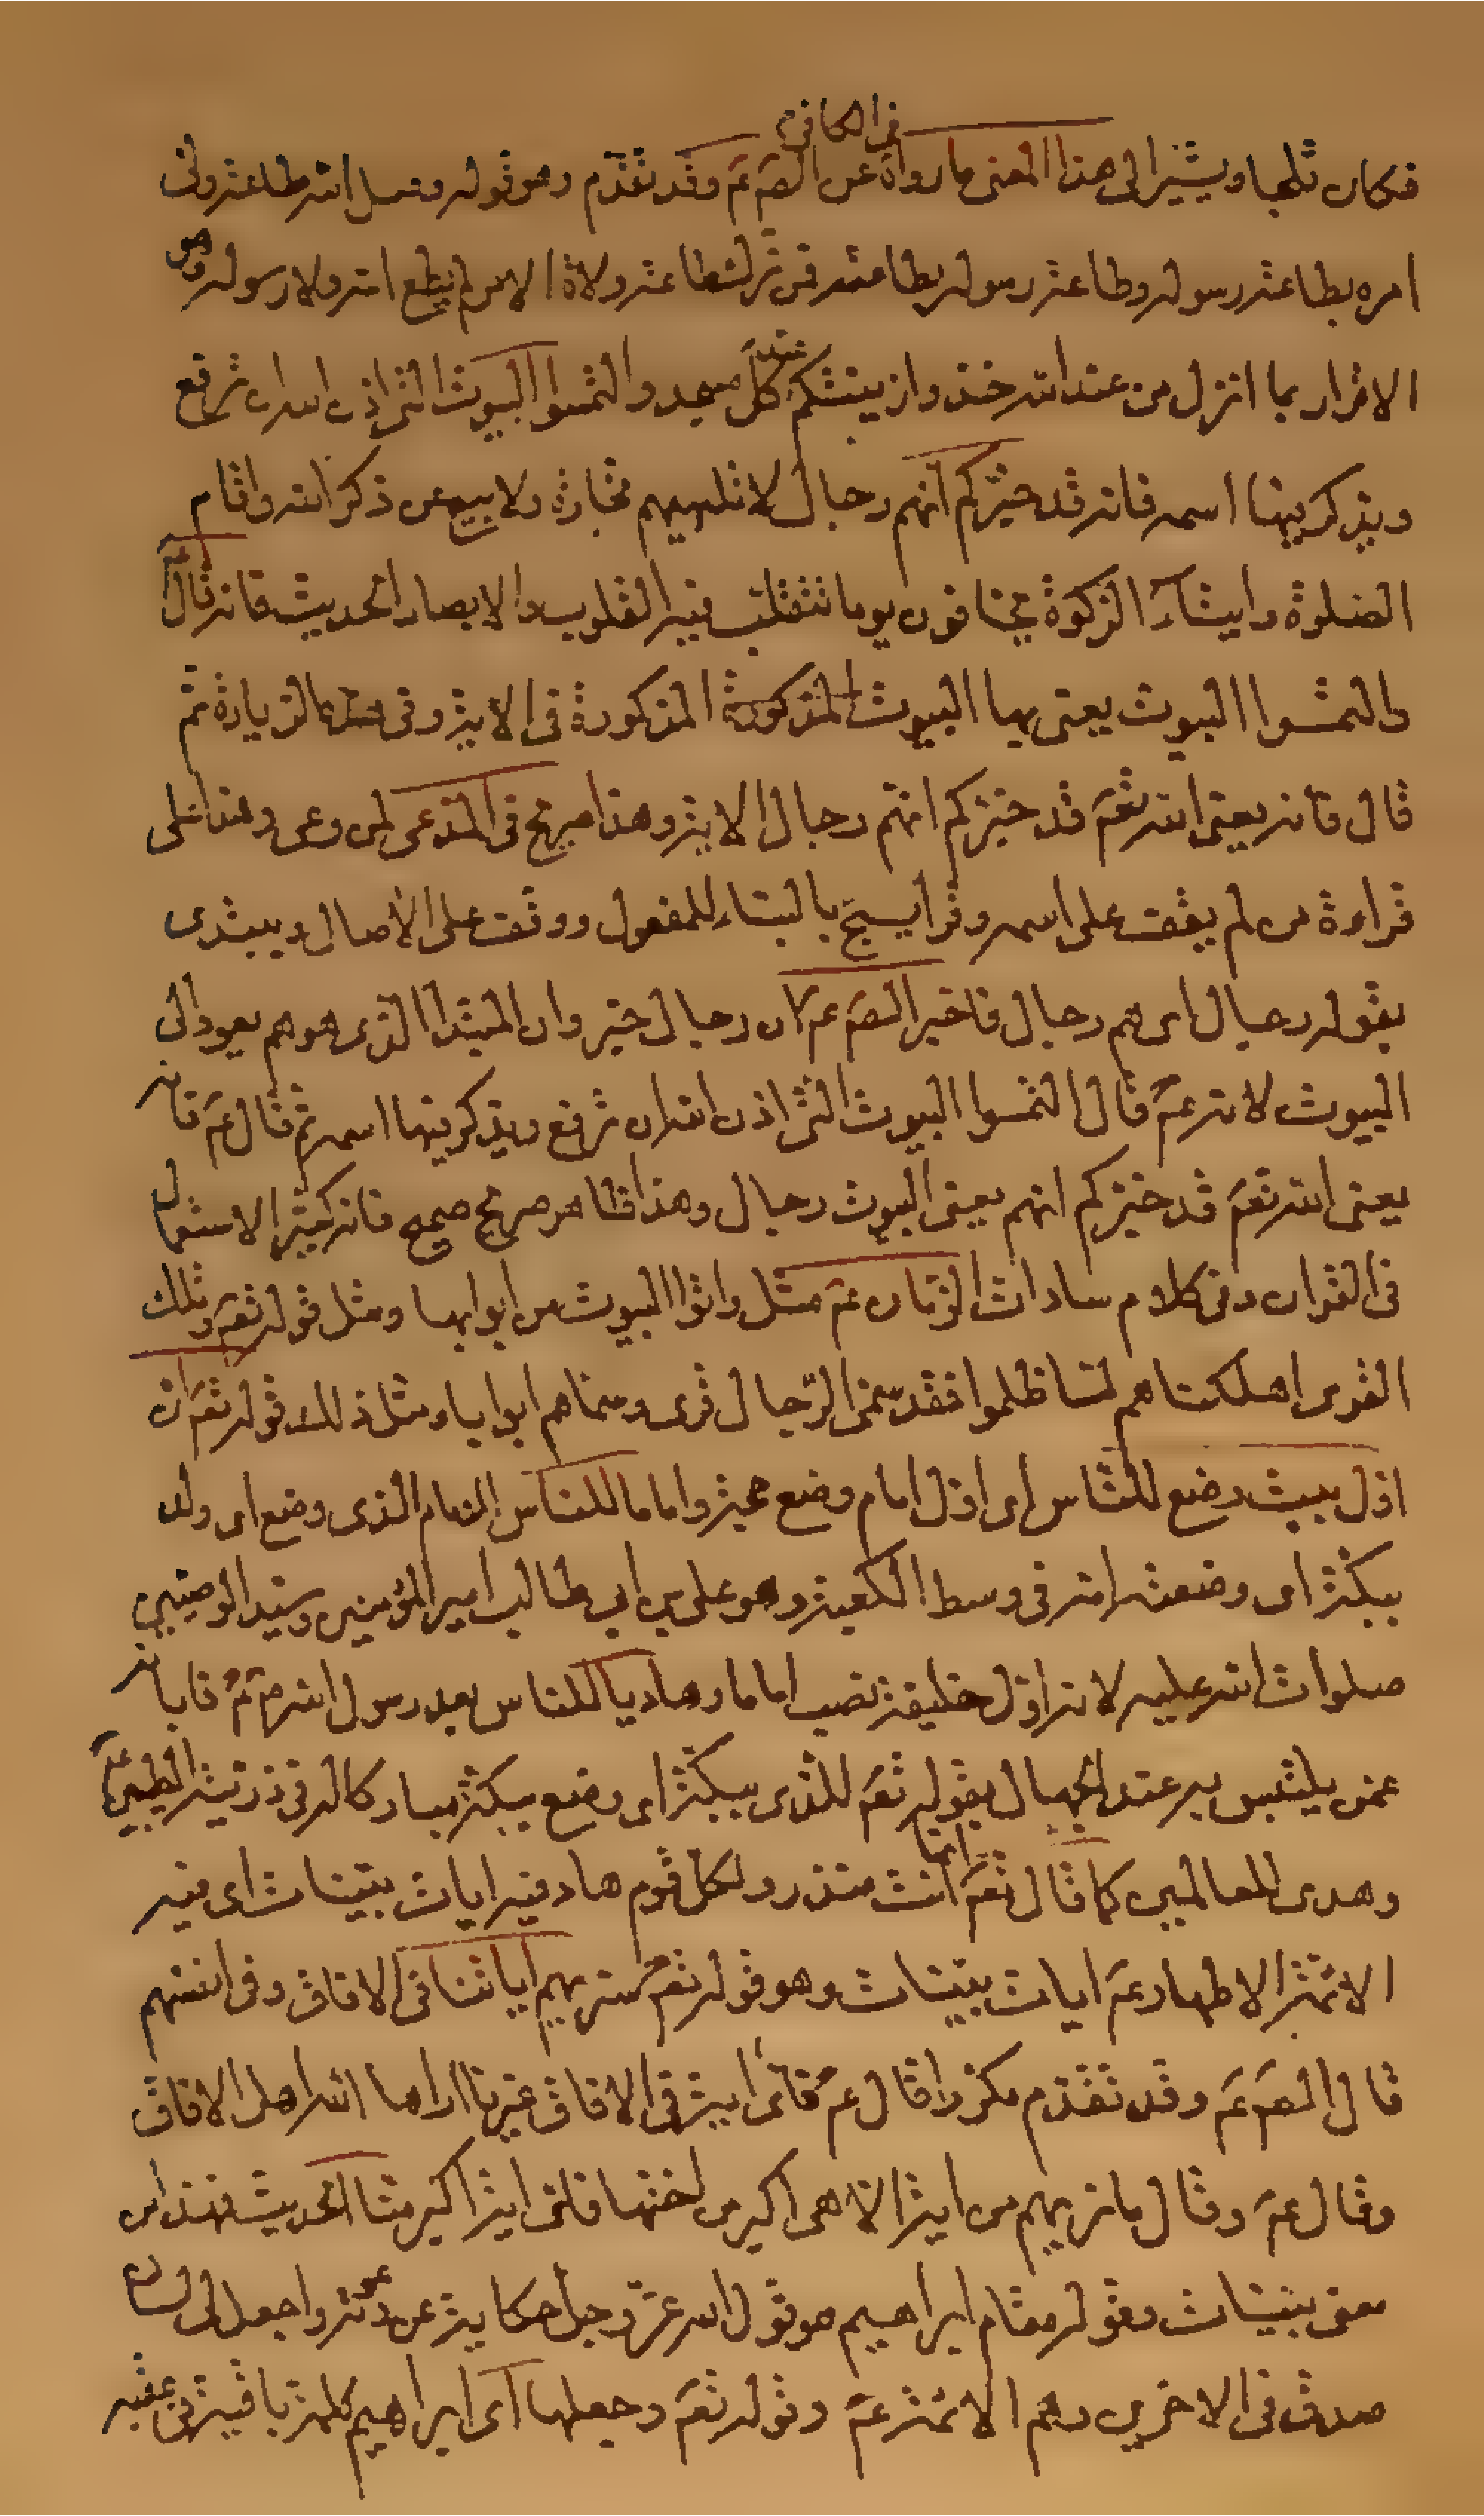 في الكافي
فكان ثلجا ويشير الى هذا المعنى ما رواه عن الصّ عَم وقد تقدّم وهو قوله وصل الله طاعة ولي
امره بطاعة رسوله وطاعة رسوله بطاعته فمن ترك طاعة ولاة الامر لم يطع الله ولا رسوله وهو
الاقرار بما انزل من عند الله خذوا زينتكم عند كلّ مسجد والتمسوا البيوت التي اذن الله ان ترفع
ويذكر فيها اسمه فانه قد خبّركم انهم رجال لا تلهيهم تجارة ولا بيع عن ذكر الله واقام
الصلوة وايتاء الزكوة يخافون يوما تتقلب فيه القلوب والابصار الحديث فانه قال عَم
والتمسوا البيوت يعني بها البيوت المذكورة المذكورة في الاية وفي الزيارة ثم
قال فانه يعني الله تعَم قد خبّركم انهم رجال الاية وهذا صريح في المدعى لمن وعى وهذا على
قراءة من لم يقف على اسمه وقرا يسبّح بالبناء للمفعول ووقف على الأصال ويبتدى
بقوله رجال اى هم رجال فاخبر الصّ عَم كان رجال خبر وان المبتدا الذى هو هم يعود الى
البيوت لانه عَم قال التمسوا البيوت التى اذن الله ان ترفع ويذكر فيها اسمه ثم قال عَم فانه
يعنى الله تعَم قد خبّركم انهم يعنى البيوت رجال وهذا ظاهر صريح صحيح فانه كثير الاستعمال
فى القران وفى كلام سادات الزمان عَم مثل واتوا البيوت من ابوابها ومثل قوله تعَم وتلك
القرى اهلكناهم لمّا ظلموا فقد سمّى الرّجال قرى وسمّاهم ابوابا ومثل ذلك قوله تعَم ان
اوّل بيت وضع للنّاس اى اوّل امام وضع حجة واماما للناس الامام الذى وضع اى ولد
ببكّة اى وضعته امه فى وسط الكعبة وهو على بن ابى طالب امير المؤمنين وسيّد الوصيّين
صلوات الله عليه لانه اوّل خليفة نصب اماما وهاديا للناس بعد رسول الله صَم ثُم فابانه
عمن يلتبس به عند الجهال بقوله تعَم للذى ببكّة اى وضع ببكّة مباركا له فى ذرّيته الطيبين عَم
وهدى للعالمين كما قال تعَم انما انت منذر ولكل قوم هاد فيه ايات بيّنات اى فيه
الائمّة الاطهار عَم ايات بيّنات وهو قوله تعَم سنريهم اياتنا فى الافاق وفى انفسهم
قال الصّ عَم وقد تقدّم مكرّرا قال عَم فاىّ اية فى الافاق غيرنا اراها الله اهل الافاق
وقال عَم وقال ما نريهم من اية الا هى اكبر من اختها فاىّ اية اكبر منّا الحديث فهذا من
معنى بيّنات وقوله مقام ابراهيم هو قول الله عزّ وجل حكاية عن دعوته واجعل لى لسان
صدق فى الاخرين وهم الائمّة عَم وقوله تعَم وجعلها اى ابراهيم كلمة باقية فى عقبه